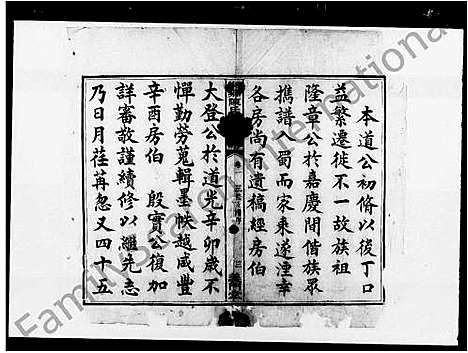 本道公初脩以後丁口
益繁遷徙不一故族祖
隆章公於嘉慶間偕族眾
攜譜入蜀而家乘遂湮幸
各房尚有遺稿經房伯
大登公於道光辛卯歲不
憚勤勞蒐輯墨帙越咸豐
辛酉房伯 殷實公復加
詳審敬謹續修以繼先志
乃日月荏苒忽又四十五
FamilySearch International